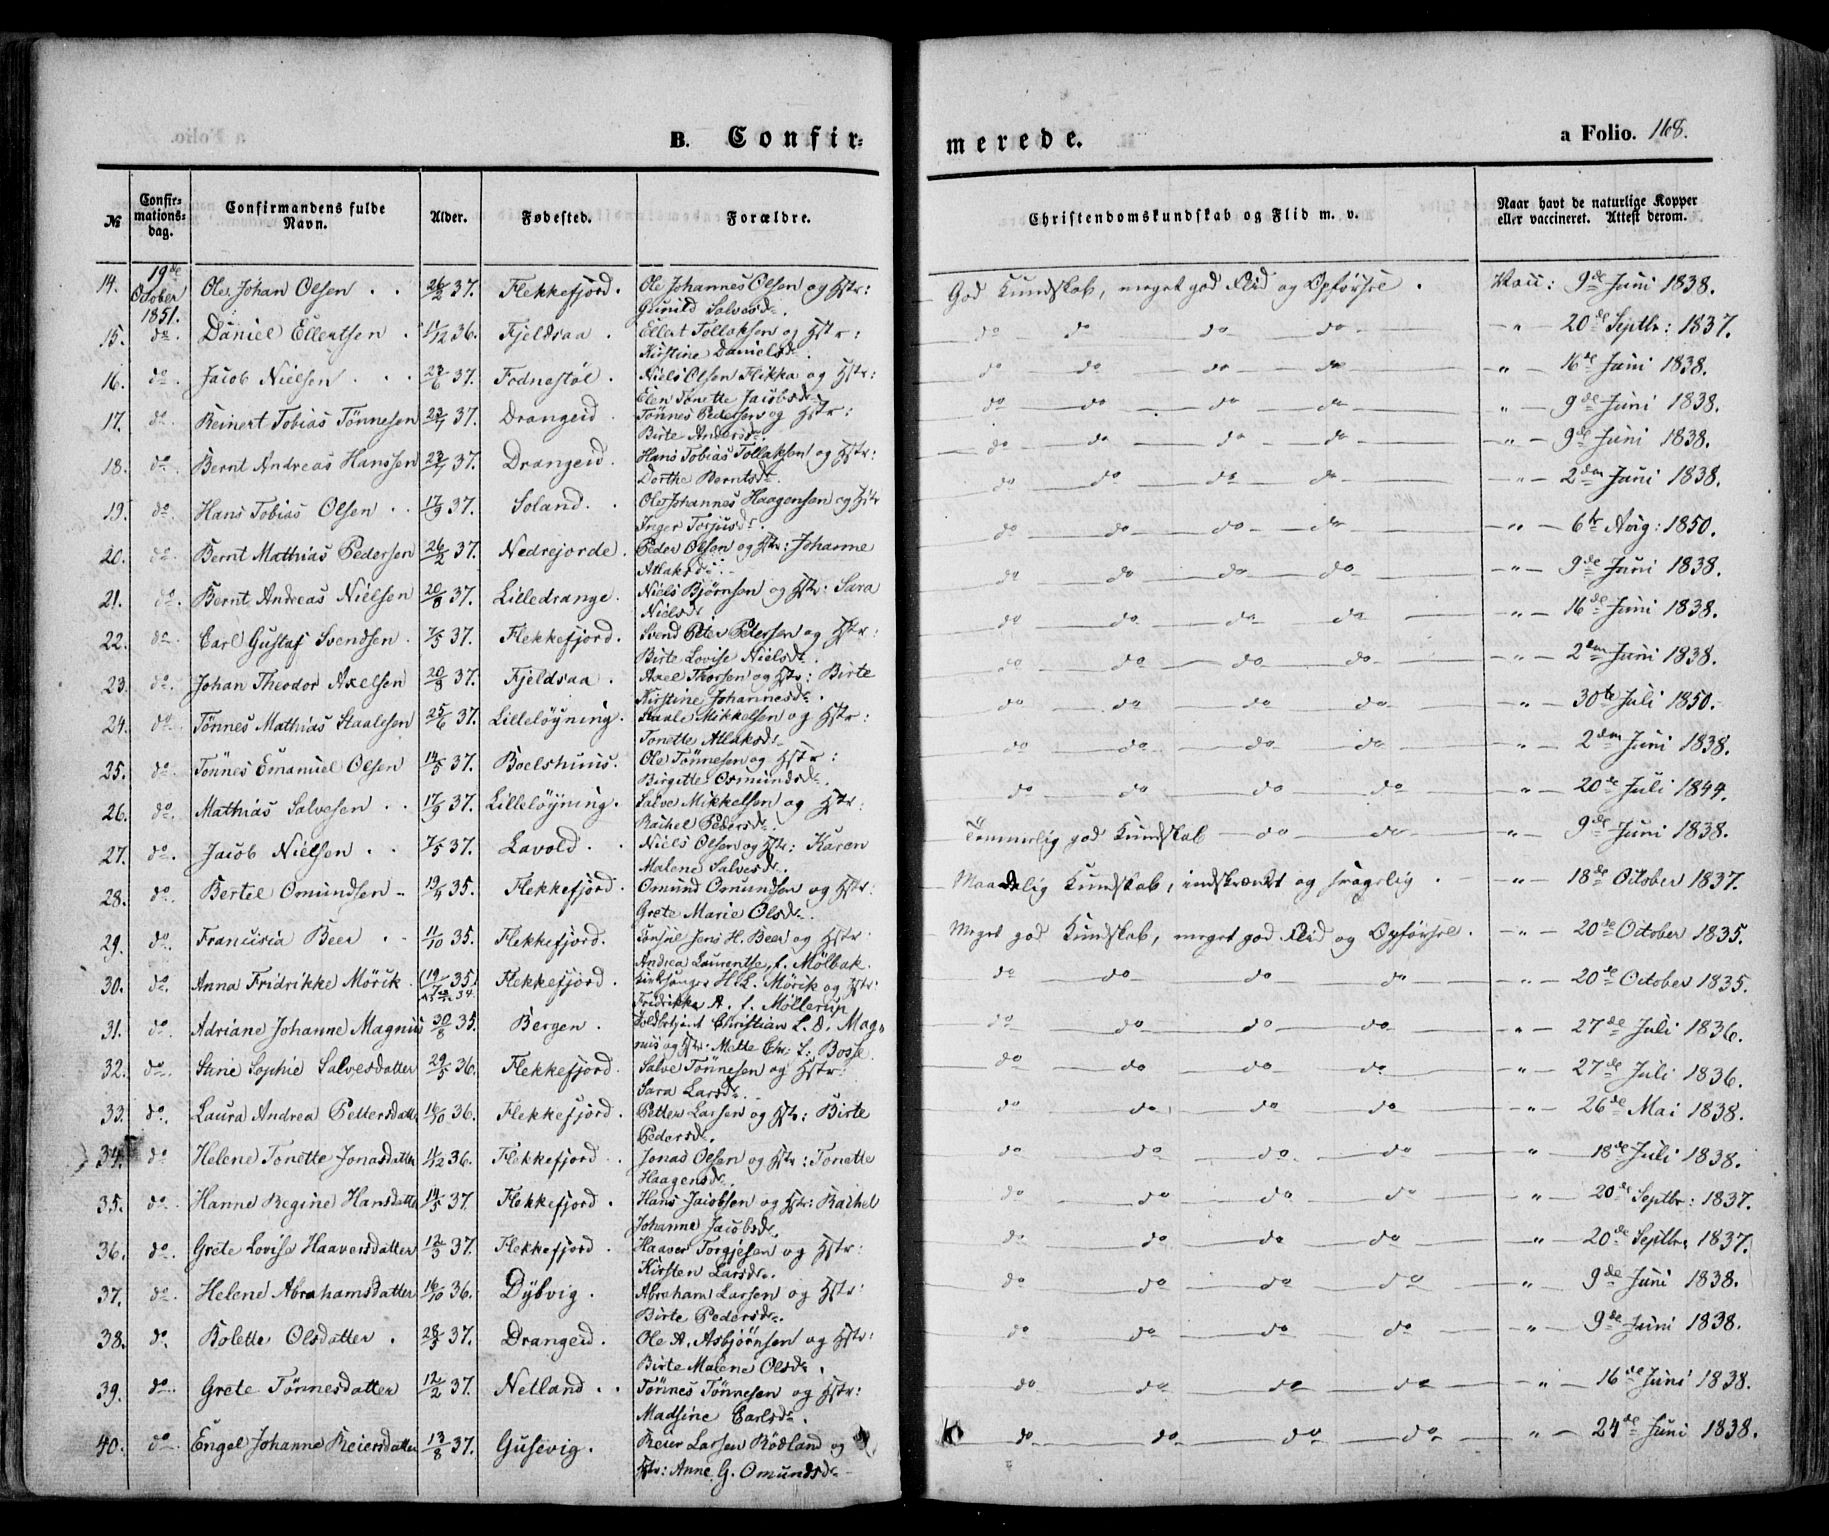 B. Confir=
merede.
a Folio. 168.
№
Confir=
mations=
dag.
Confirmandens fulde
Navn.
Alder.
Fødested.
Forældre.
Christendomskundskab og Flid m. v.
Naar havt de naturlige Kopper
eller vaccineret. Attest derom.
14. 19de October 1851. Ole Johan Olsen 26/2 37. Flekkefjord. Ole Johannes Olsen og Hstr: God Kundskab, meget god Flid og Opførsel. Vacc: 9de Juni 1838.
Gunild Salvesdr.
15. do. Daniel Ellertsen 36. Fjeldsaa. Ellert Tollaksen og Hstr: do do do do " 20de Septbr: 1837.
Kirstine Danielsdr.
16. do. Jacob Nielsen 37. Fodnestøl. Niels Olsen Flikka og Hstr: do do do do " 16de Juni 1838.
Elen Tonette Jacobsdr.
17. do. Reinert Tobias Tönnesen 37. Drangeid. Tönnes Pedersen og Hstr: do do do do " 9de Juni 1838.
Birte Andersdr.
18. do. Bernt Andreas Hanssen 37. Drangeid. Hans Tobias Tollaksen og Hstr: do do do do " 9de Juni 1838.
Dorthe Berntsdr.
19. do. Hans Tobias Olsen 17/9 37. Soland. Ole Johannes Haagensen og Hstr do do do do " 2den Juni 1838.
Inger Torjusdr.
20. do. Bernt Mathias Pedersen 26/2 37. Nedrejorde. Peder Olsen og Hstr: Johanne do do do do " 6te Aug: 1850.
Atlaksdr.
21. do. Bernt Andreas Nielsen 20/8 37. Lilledrange. Niels Bjørnsen og Hstr: Sara do do do do " 9de Juni 1838.
Nielsdr.
22. do. Carl Gustaf Svendsen 7/5 37. Flekkefjord. Svend Peter Petersen og Hstr: do do do do " 16de Juni 1838.
Birte Lovise Nielsdr.
23. do. Johan Theodor Axelsen 20/8 37. Fjeldsaa. Axel Thorsen og Hstr: Birte do do do do " 2den Juni 1838.
Kirstine Johannesdr.
24. do. Tönnes Mathias Staalesen 25/6 37. Lilleløyning. Staale Mikkelsen og Hstr: do do do do " 30te Juli 1850.
Tonette Atlaksdr.
25. do. Tönnes Emanuel Olsen 14/5 37. Boelshuus. Ole Tønnesen og Hstr: do do do do " 2den Juni 1838.
Birgitte Osmundsdr.
26. do. Mathias Salvesen 17/9 37. Lilleløyning. Salve Mikkelsen og Hstr: do do do do " 20de Juli 1844.
Rachel Pedersdr.
27. do. Jacob Nielsen 7/5 37. Lavold. Niels Olsen og Hstr: Karen Temmelig god Kundskab do do " 9de Juni 1838.
Malene Salvesdr.
28. do. Bertel Omundsen 19/4 35. Flekkefjord. Omund Omundsen og Hstr: Maadelig Kundskab, indskrænket og " 18de October 1837.
Grete Marie Olsdr.
29. do. Francisia Beer 11/10 35. Flekkefjord. Consul Jens H. Beer og Hstr: Meget god Kundskab, meget god Flid og Opførsel. " 20de October 1835.
Andrea Laurentse, f. Mölbak.
30. do. Anna Fridrikke Mörik 19/7 35. Flekkefjord. Kirksanger H. L. Mörik og Hstr: do do do do " 20de October 1835.
Fridrikke A. f. Möllerup
31. do. Adriane Johanne Magnus 30/8 35. Bergen. Toldbetjent Christian L. D. Mag= do do do do " 27de Juli 1836.
nus og Hstr: Mette Chr: f: Bosse.
32. do. Stine Sophie Salvesdatter 29/5 36. Flekkefjord. Salve Tönnesen og Hstr: do do do do " 27de Juli 1836.
Sara Larsdr.
33. do. Laura Andrea Pettersdatter 36. Flekkefjord. Petter Larsen og Hstr: Birte do do do do " 26de Mai 1838.
Pedersdr.
34. do Helene Tonette Jonasdatter 36. Flekkefjord. Jonas Olsen og Hstr: Tonette do do do do " 18de Juli 1838.
Haagensdr.
35. do. Hanne Regine Hansdatter 14/5 37. Flekkefjord. Hans Jacobsen og Hstr: Rachel do do do do " 20de Septbr: 1837.
Johanne Jacobsdr.
36. do. Grete Lovise Haaversdatter 37. Flekkefjord. Haaver Torgjesen og Hstr: do do do do " 20de Septbr. 1837.
Kirsten Larsdr.
37. do. Helene Abrahamsdatter 16/10 36. Dybvig. Abraham Larsen og Hstr: do do do do " 9de Juni 1838.
Birte Pedersdr.
38. do. Bolette Olsdatter 37. Drangeid. Ole A. Asbjørnsen og Hstr: do do do do " 9de Juni 1838.
Birte Malene Olsdr.
39. do. Grete Tönnesdatter 12/2 37. Netland. Tönnes Tönnesen og Hstr: do do do do " 16de Juni 1838.
Madsine Carlsdr.
40. do. Engel Johanne Reiersdatter 13/8 37. Gusevig. Reier Larsen Rödland og do do do do " 24de Juni 1838.
Hstr: Anne G. Omundsdr.